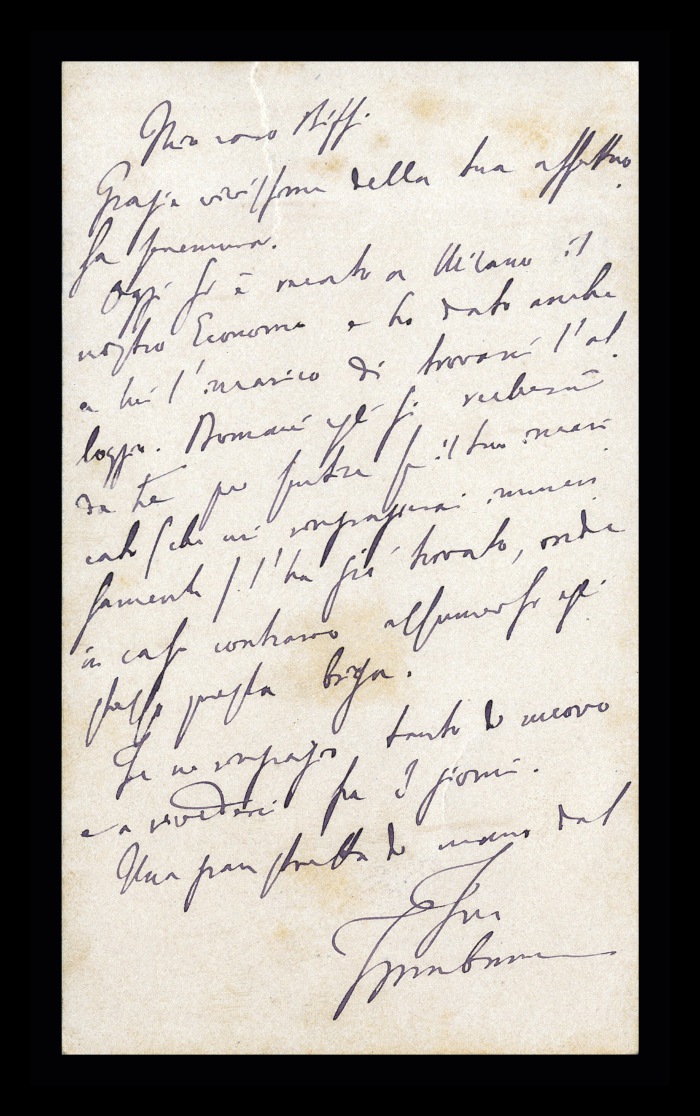 Mio caro Biffi.
Grazie vivissime della tua affettuo
sa premura.
Oggi si è recato a Milano il
nostro Economo e ho dato anche
a lui l'incarico di trovarci l'al
loggio. Domani egli si recherà
da te per sentire se il tuo incari
cato (che mi ringrazierai immen
samente) l'ha già trovato, onde
in caso contrario assumersi egli
stesso questa briga.
Te ne ringrazio tanto di nuovo
e a rivederci fra 3 giorni.
Una gran stretta di mano dal
tuo